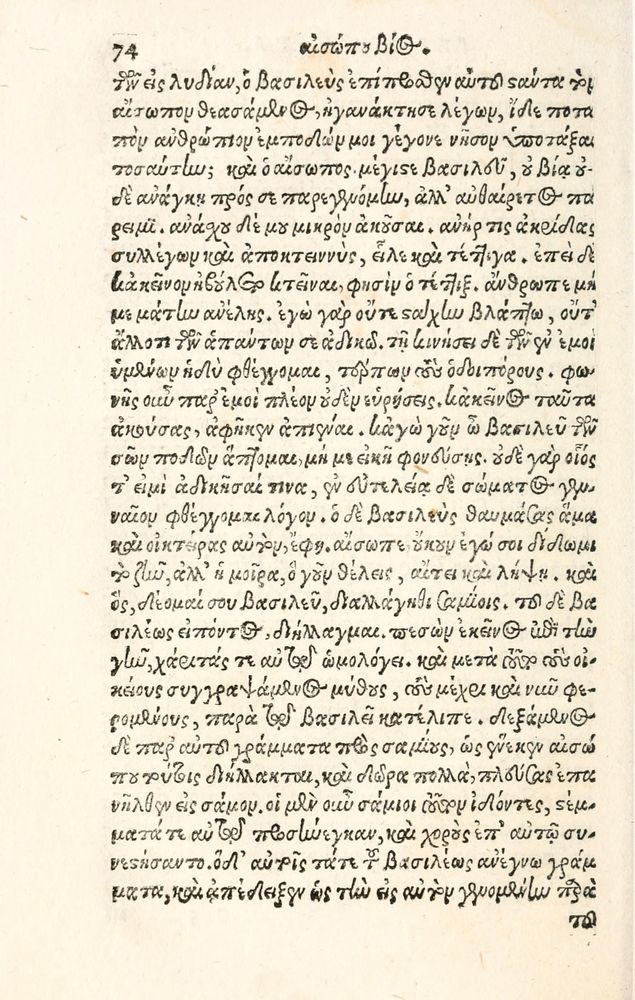 74 αἰσώπου βίος.
τὴν εἰς λυδίαν, ὁ βασιλεὺς ἐπίπροσθεν αὐτοῦ στάντα τὸν
αἴσωπον θεασάμενος, ἠγανάκτησε λέγων, ἴδε ποτα
πὸν ἀνθρώπιον ἐμποδών μοι γέγονε νῆσον ὑποτάξαι
τοσαύτην; καὶ ὁ αἴσωπος. μέγιστε βασιλεῦ, οὐ βίᾳ οὐ-
δὲ ἀνάγκῃ πρός σε παρεγενόμην, ἀλλ' αὐθαίρετος πά
ρειμι. ἀνάσχου δέ μου μικρὸν ἀκοῦσαι. ἀνήρ τις ἀκρίδας
συλλέγων καὶ ἀποκτεννὺς, εἷλε καὶ τέττιγα. ἐπεὶ δὲ
κἀκεῖνον ἠβούλετο κτεῖναι, φησὶν ὁ τέττιξ. ἄνθρωπε μή
με μάτην ἀνέλῃς. ἐγὼ γὰρ οὔτε στάχυν βλάπτω, οὔτ'
ἄλλό τι τῶν ἁπάντων σε ἀδικῶ. τῇ κινήσει δὲ τῶν ἐν ἐμοὶ
ὑμένων ἡδὺ φθέγγομαι, τέρπων τοὺς ὁδοιπόρους. φω-
νῆς οὖν παρ' ἐμοὶ πλέον οὐδὲν εὑρήσεις. κἀκεῖνος ταῦτα
ἀκούσας, ἀφῆκεν ἀπιέναι. κἀγὼ γοῦν ὦ βασιλεῦ τῶν
σῶν ποδῶν ἅπτομαι, μή με εἰκῆ φονεύσῃς. οὐδὲ γὰρ οἷός
τ' εἰμὶ ἀδικῆσαί τινα, ἐν εὐτελείᾳ δὲ σώματος γεν-
ναῖον φθέγγομαι λόγον. ὁ δὲ βασιλεὺς θαυμάσας ἅμα
καὶ οἰκτείρας αὐτὸν, ἔφη. αἴσωπε οὐκ ἐγώ σοι δίδωμι
τὸ ζῆν, ἀλλ' ἡ μοῖρα, ὃ γοῦν θέλεις, αἴτει καὶ λήψῃ. καὶ
ὃς, δέομαί σου βασιλεῦ, διαλλάγηθι σαμίοις. τοῦ δὲ βα
σιλέως εἰπόντος, διήλλαγμαι. πεσὼν ἐκεῖνος ἐπὶ τὴν
γῆν, χάριτάς τε αὐτῷ ὡμολόγει. καὶ μετὰ τοῦτο τοὺς οἰ-
κείους συγγραψάμενος μύθους, τοὺς μέχρι καὶ νῦν φε-
ρομένους, παρὰ τῷ βασιλεῖ κατέλιπε. δεξάμενος
δὲ παρ' αὐτοῦ γράμματα πρὸς σαμίους, ὡς ἕνεκεν αἰσώ
που τούτοις διήλλακται, καὶ δῶρα πολλὰ, πλεύσας ἐπα
νῆλθεν εἰς σάμον. οἱ μὲν οὖν σάμιοι τοῦτον ἰδόντες, στέμ-
ματά τε αὐτῷ προσήνεγκαν, καὶ χοροὺς ἐπ' αὐτῷ συ-
νεστήσαντο. ὁ δ' αὐτοῖς τά τε τοῦ βασιλέως ἀνέγνω γράμ
ματα, καὶ ἀπέδειξεν ὡς τὴν εἰς αὐτὸν γενομένην παρὰ
τοῦ